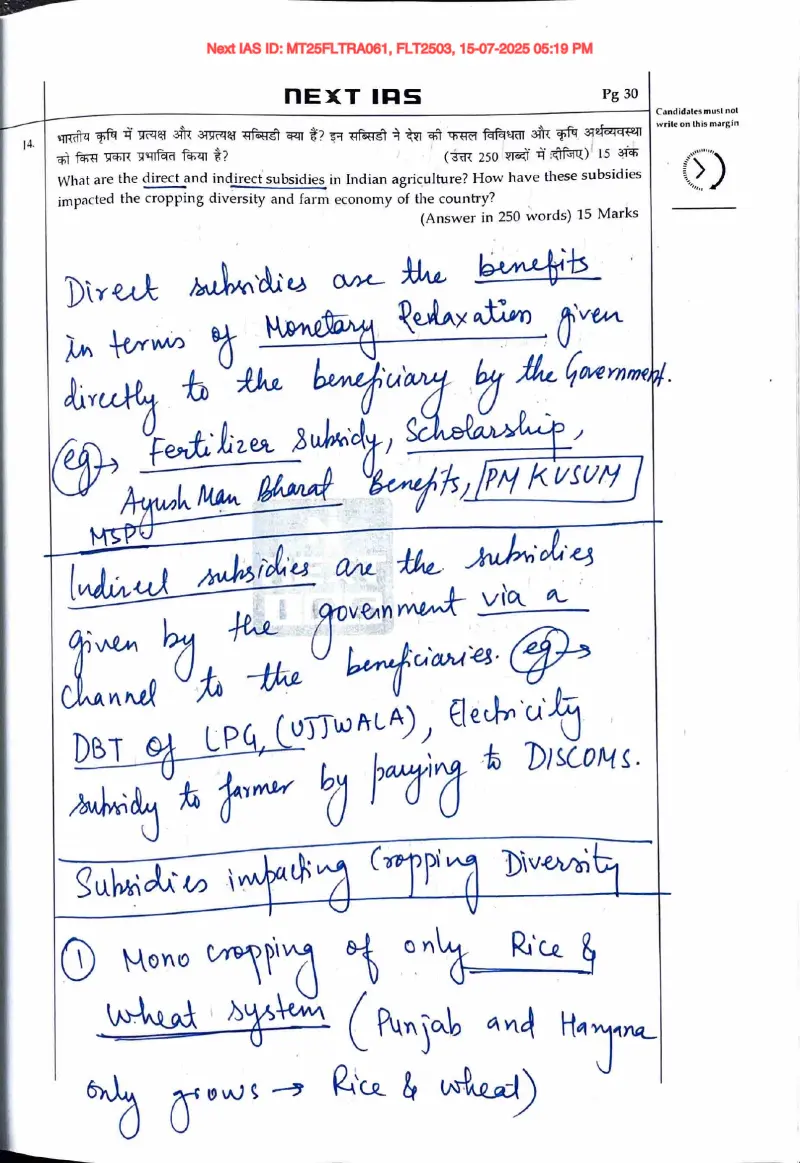 Next IAS ID: MT25FLTRA061, FLT2503, 15-07-2025 05:19 PM
NEXT IAS
Pg 30
Candidates must not
write on this margin
14.
भारतीय कृषि में प्रत्यक्ष और अप्रत्यक्ष सब्सिडी क्या हैं? इन सब्सिडी ने देश की फसल विविधता और कृषि अर्थव्यवस्था
को किस प्रकार प्रभावित किया है?
(उत्तर 250 शब्दों में दीजिए) 15 अंक
What are the direct and indirect subsidies in Indian agriculture? How have these subsidies
impacted the cropping diversity and farm economy of the country?
(Answer in 250 words) 15 Marks
Direct subsidies are the benefits
in terms of Monetary Relaxation given
directly to the beneficiary by the Government.
eg → Fertilizer Subsidy, Scholarship,
Ayush Man Bharat Benefits, PM KUSUM
MSP
Indirect subsidies are the subsidies
given by the government via a
channel to the beneficiaries. eg →
DBT of LPG, (UJJWALA), Electricity
subsidy to farmer by paying to DISCOMS.
Subsidies impacting Cropping Diversity
① Mono cropping of only Rice &
wheat system (Punjab and Haryana
only grows → Rice & wheat)